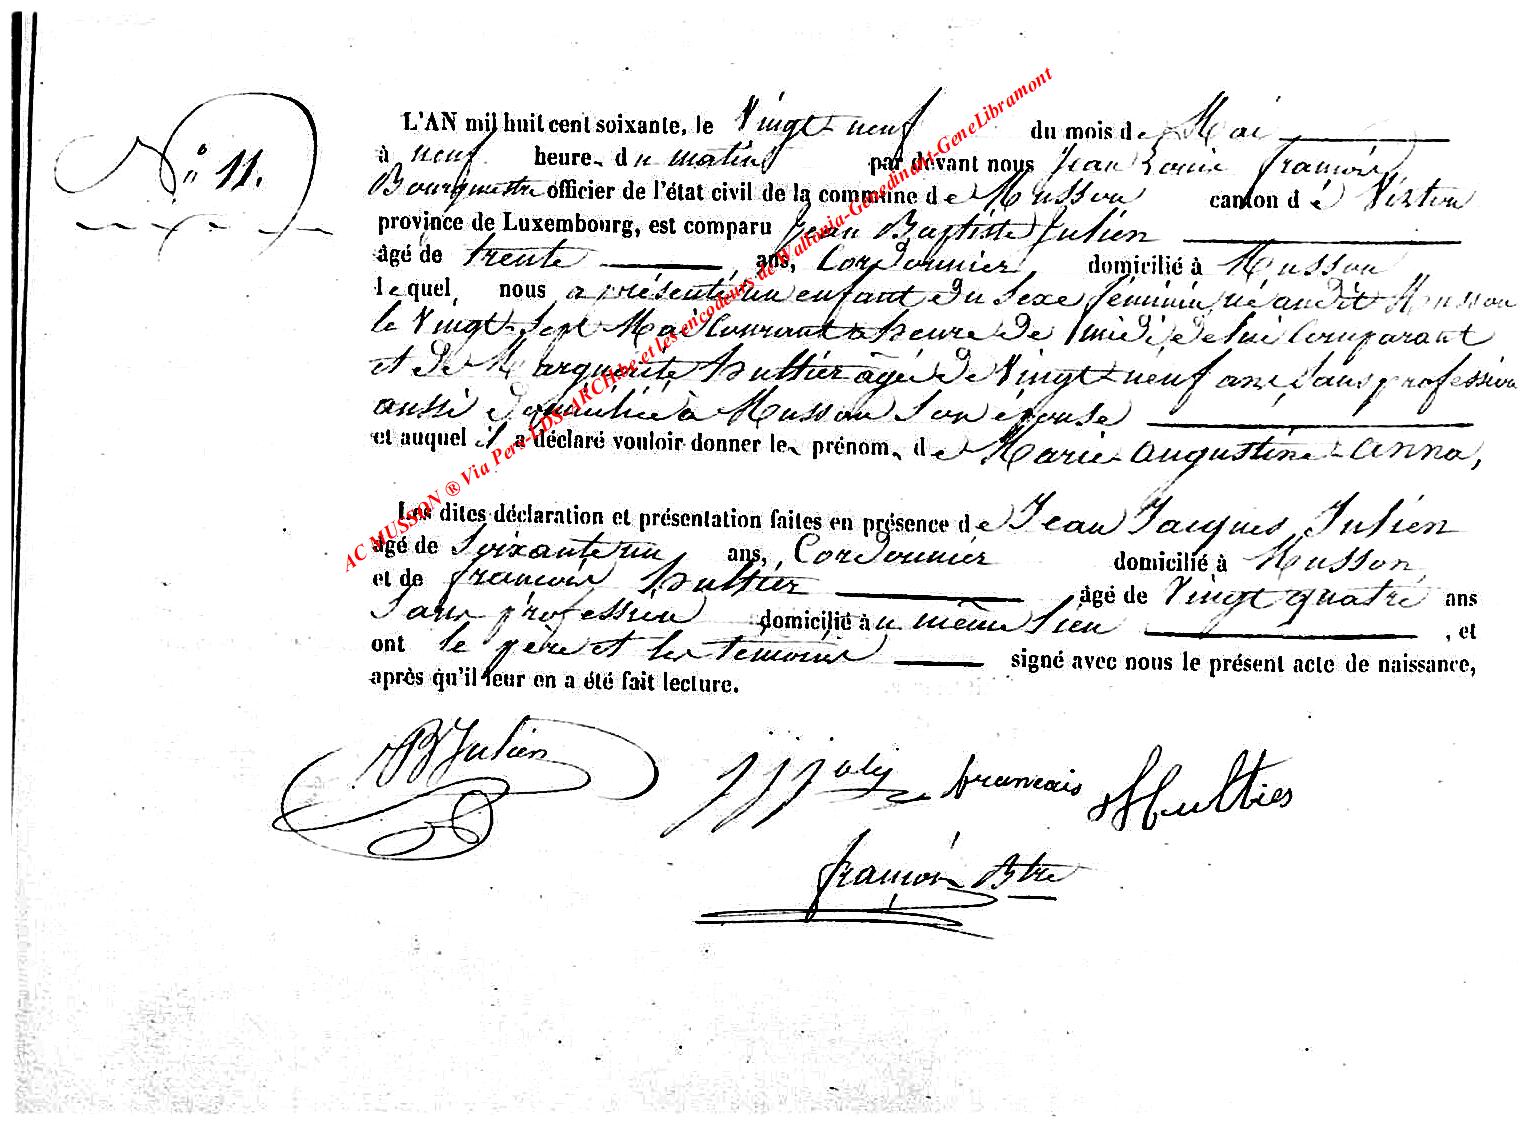 N° 11.
L'AN mil huit cent soixante, le Vingt-neuf du mois de Mai
à neuf heure du matin par devant nous Jean Louis François
Bourgmestre officier de l'état civil de la commune de Musson canton de Virton
province de Luxembourg, est comparu Jean Baptiste Julien
âgé de trente ans, Cordonnier, domicilié à Musson
lequel, nous a présenté un enfant du sexe féminin né audit Musson
le Vingt-Sept Mai Courant à heure de midi, de lui Comparant
et de Marguerite hultier âgée de Vingt-neuf ans, sans profession
aussi domiciliée à Musson son épouse
et auquel il a déclaré vouloir donner le prénom de Marie-Augustine-Anna,
Les dites déclaration et présentation faites en présence de Jean Jacques Julien
âgé de Soixante un ans, Cordonnier domicilié à Musson
et de françois hultier âgé de Vingt quatre ans
Sans profession domicilié au même lieu , et
ont le père et les témoins signé avec nous le présent acte de naissance,
après qu'il leur en a été fait lecture.
JB Julien
francais Hultier
françois Btre
AC MUSSON ® Via Pers-LDS-ARCH.be et les encodeurs de Wallonia-Genedinant-GeneLibramont